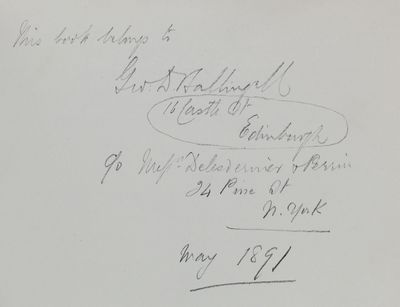 This book belongs to
Geo. D Ballingall
16 Castle St
Edinburgh
c/o Messrs Delesdernier & Perrin
24 Pine St
N. York
May 1891